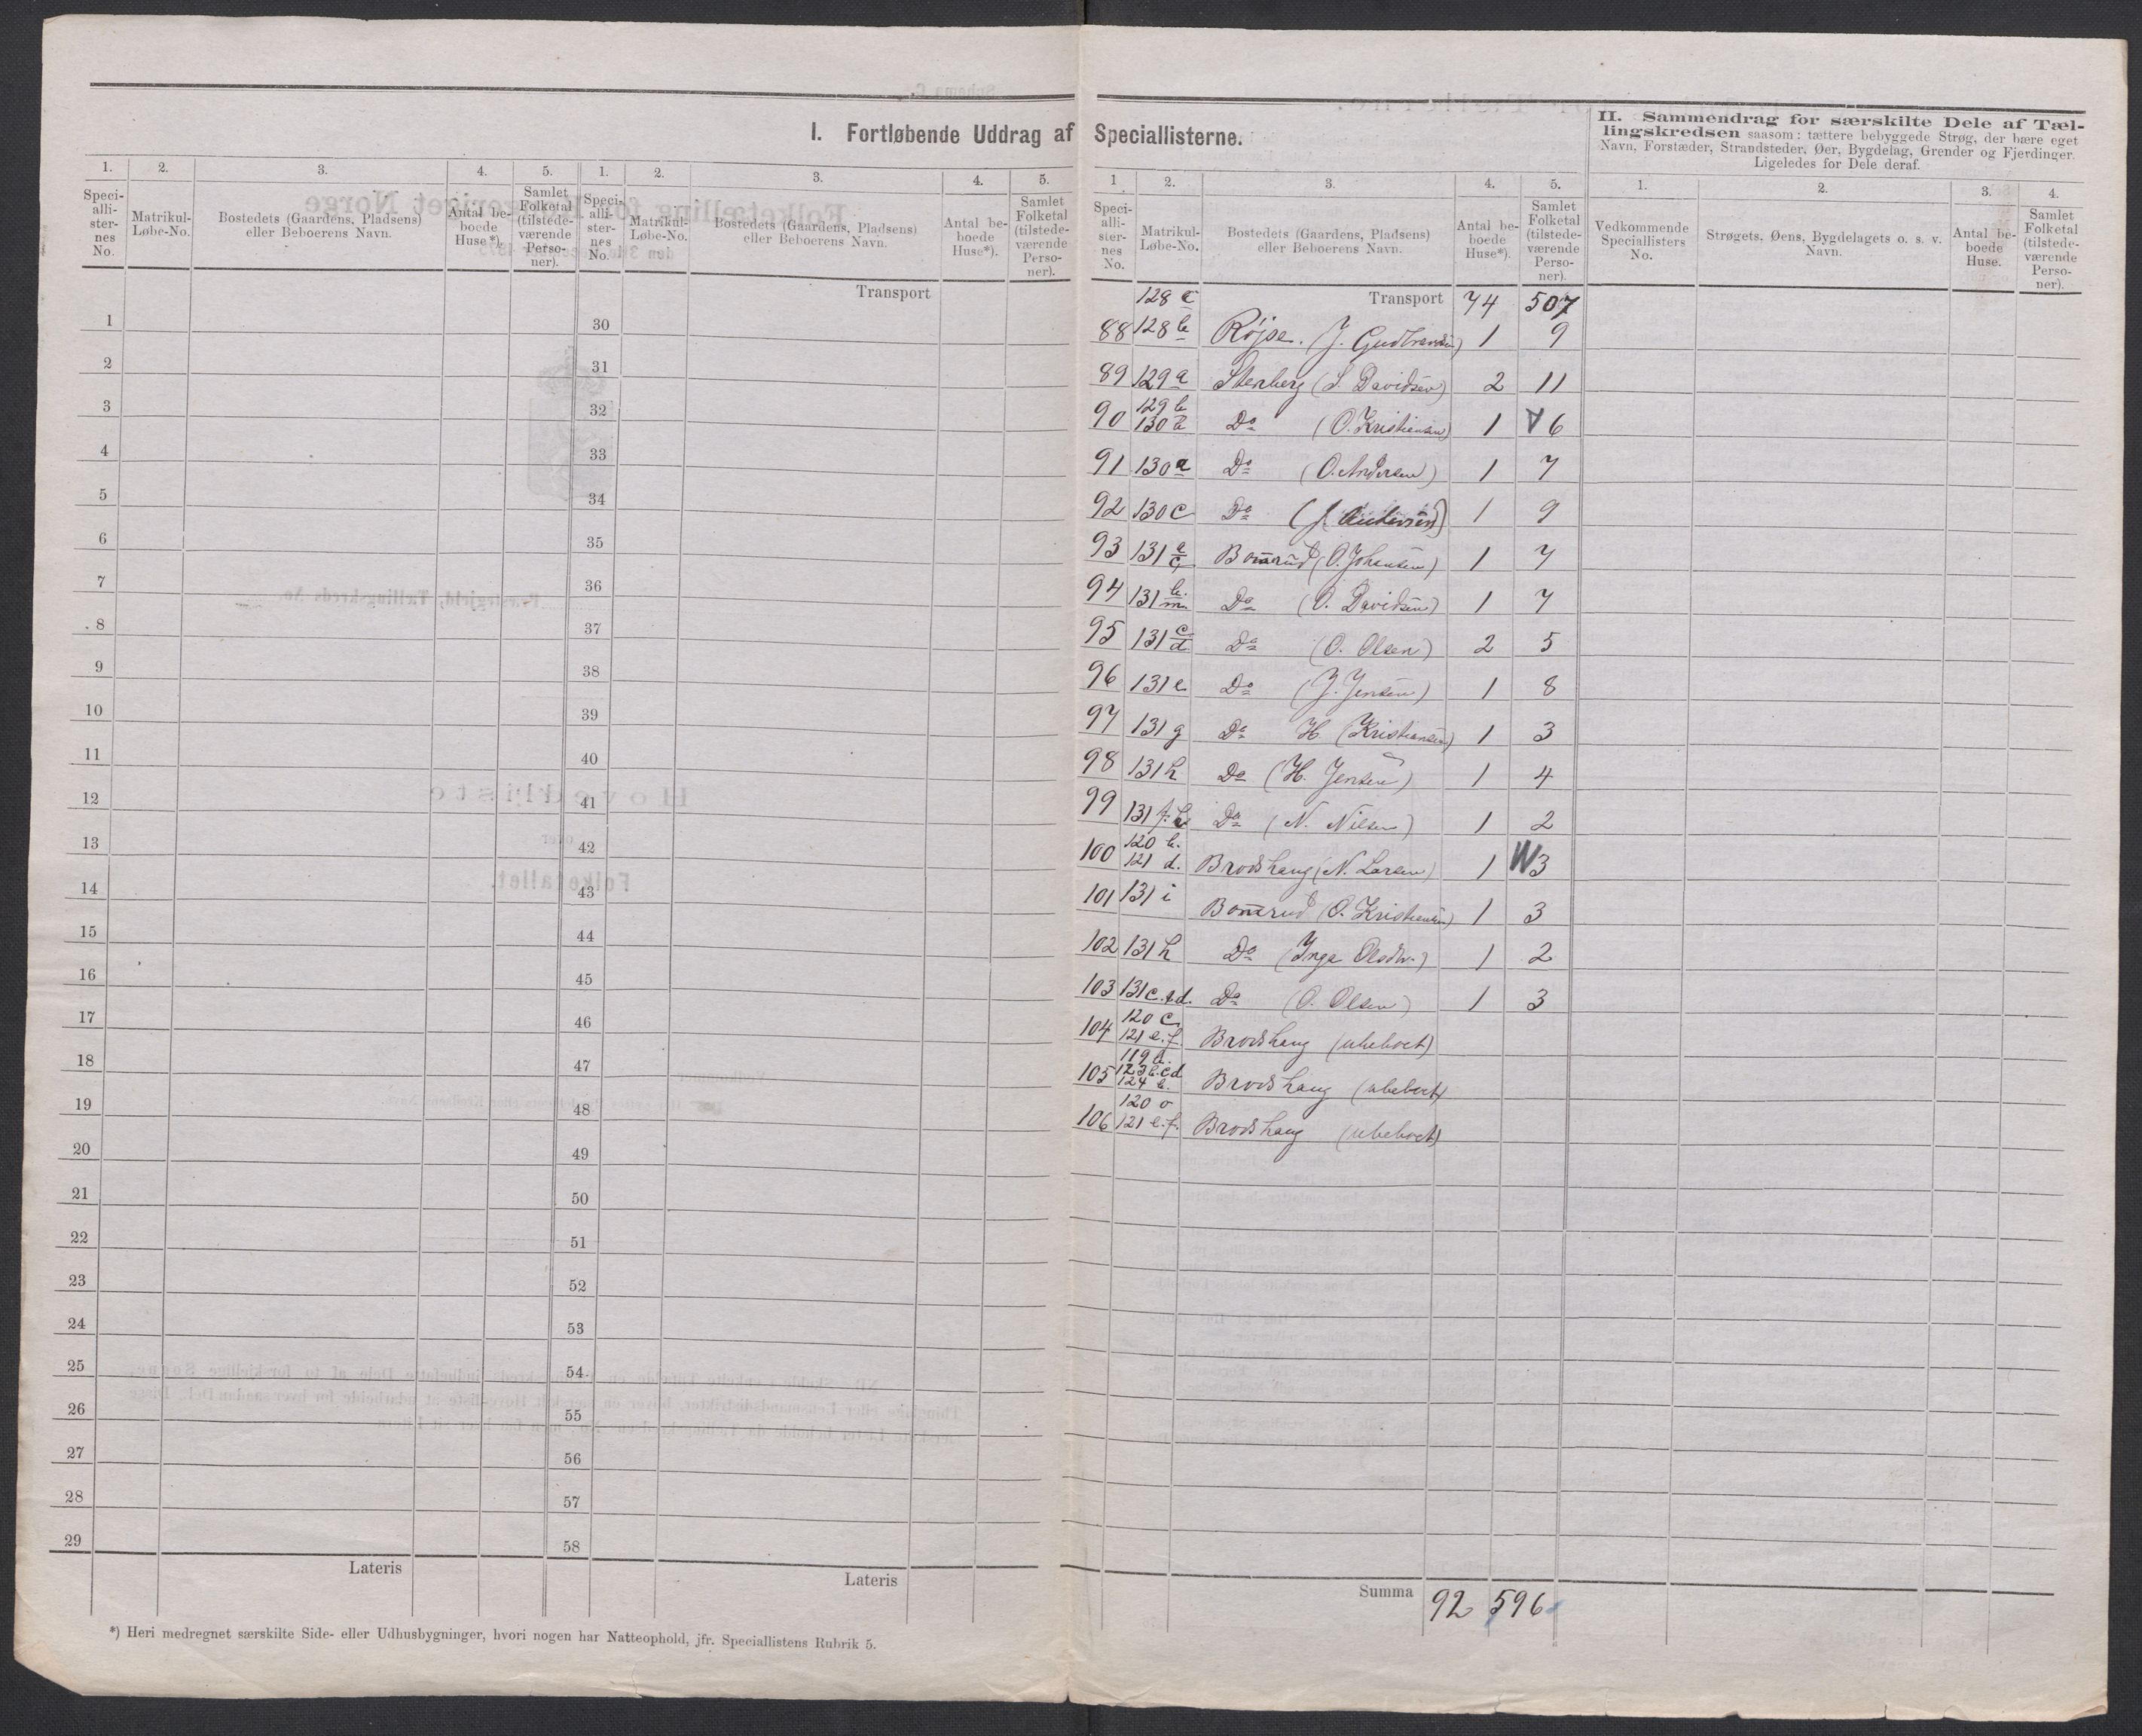 I. Fortløbende Uddrag af Speciallisterne.
1. 2. 3. 4. 5. 1. 2. 3. 4. 5.
Speciallisternes No. Matrikul-Løbe-No. Bostedets (Gaardens, Pladsens) eller Beboerens Navn. Antal beboede Huse*). Samlet Folketal (tilstedeværende Personer).
Speciallisternes No. Matrikul-Løbe-No. Bostedets (Gaardens, Pladsens) eller Beboerens Navn. Antal beboede Huse*). Samlet Folketal (tilstedeværende Personer).
Transport
1 30
2 31
3 32
4 33
5 34
6 35
7 36
8 37
9 38
10 39
11 40
12 41
13 42
14 43
15 44
16 45
17 46
18 47
19 48
20 49
21 50
22 51
23 52
24 53
25 54
26 55
27 56
28 57
29 58
Lateris Lateris
*) Heri medregnet særskilte Side- eller Udhusbygninger, hvori nogen har Natteophold, jfr. Speciallistens Rubrik 5.
1 2. 3. 4. 5.
Speciallisternes No. Matrikul-Løbe-No. Bostedets (Gaardens, Pladsens) eller Beboerens Navn. Antal beboede Huse*). Samlet Folketal (tilstedeværende Personer).
Transport 74 507
88 128 c 128 b Röjse. (J. Gudbrandsen) 1 9
89 129 a Stenberg (S. Davidsen) 2 11
90 129 b 130 b Do (O. Kristiansen) 1 6
91 130 a Do (O. Andersen) 1 7
92 130 c Do (J. Andersen) 1 9
93 131 a Bomrud (O. Johansen) 1 7
94 131 b. m. Do (O. Davidsen) 1 7
95 131 c d Do (O. Olsen) 2 5
96 131 e Do (J. Jensen) 1 8
97 131 g Do H (Kristiansen) 1 3
98 131 h Do (H. Jensen) 1 4
99 131 Do (N. Nilsen) 1 2
100 120 b. 121 d. Brodshaug (N. Larsen) 1 3
101 131 i Bomrud (O. Kristiansen) 1 3
102 131 h Do (Inga Olsdtr.) 1 2
103 131 c. d. Do (O. Olsen) 1 3
104 120 c 121 e. f. Brodshaug (ubeboet)
105 119 b. 123 b. c d 124 b. Brodshaug (ubeboet)
106 120 121 e. f. Brodshaug (ubeboet)
Summa 92 596
II. Sammendrag for særskilte Dele af Tællingskredsen saasom: tættere bebyggede Strøg, der bære eget
Navn, Forstæder, Strandsteder, Øer, Bygdelag, Grender og Fjerdinger.
Ligeledes for Dele deraf.
1. 2. 3. 4.
Vedkommende Speciallisters No. Strøgets, Øens, Bygdelagets o. s. v. Navn. Antal beboede Huse. Samlet Folketal (tilstedeværende Personer).